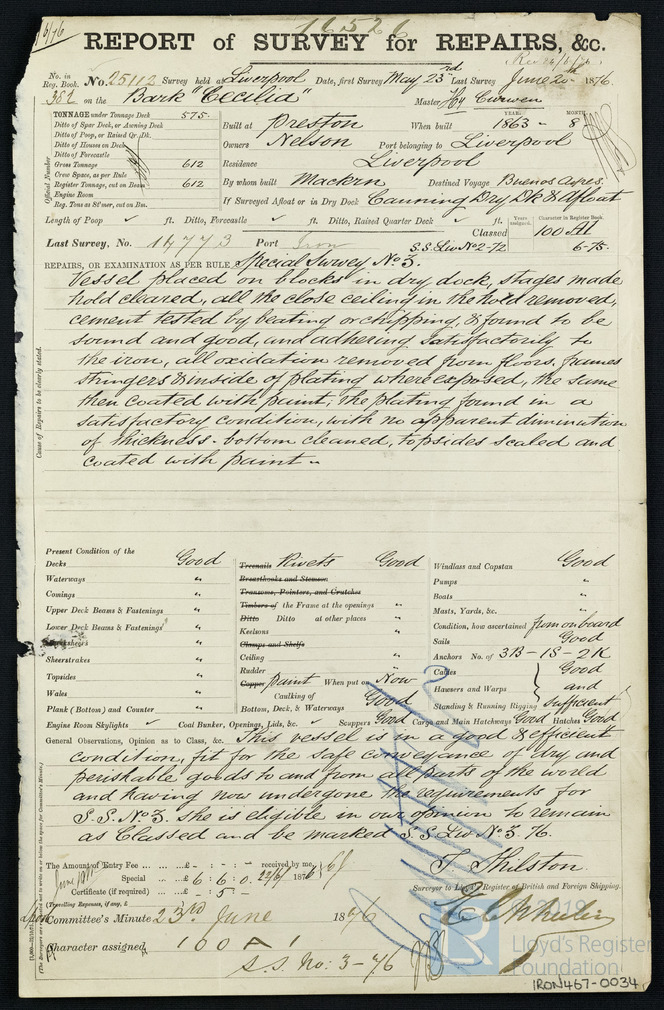 16526
REPORT of SURVEY for REPAIRS, &c.
No. in Reg. Book. No. 25112 Survey held at Liverpool Date, first Survey May 23rd Last Survey June 20th 1876.
on the Bark "Cecilia" Master Hy Curwen
TONNAGE under Tonnage Deck 575.
Ditto of Spar Deck, or Awning Deck
Ditto of Poop, or Raised Qr. Dk.
Ditto of Houses on Deck
Ditto of Forecastle
Gross Tonnage 612
Crew Space, as per Rule
Register Tonnage, cut on Beam 612
Engine Room
Reg. Tons as St'mer, cut on Bm.
Official Number
YEAR. MONTH.
Built at Preston When built 1863 - 8
Owners Nelson Port belonging to Liverpool
Residence Liverpool
By whom built Destined Voyage Buenos Ayres.
If Surveyed Afloat or in Dry Dock Canning Dry Dk & Afloat
Length of Poop ft. Ditto, Forecastle ft. Ditto, Raised Quarter Deck ft.
Years assigned. Character in Register Book.
Classed 100 A1
Last Survey, No. 14773 Port Iron S.S. Liv No 2-72 6-75.
REPAIRS, OR EXAMINATION AS PER RULE Special Survey No 3.
Vessel placed on blocks in dry dock, stages made
hold cleared, all the close ceiling in the hold removed,
cement tested by beating or chipping, & found to be
sound and good, and adhering satisfactorily to
the iron, all oxidation removed from floors, frames
stringers & inside of plating where exposed, the same
then coated with paint, the plating found in a
satisfactory condition, with no apparent diminution
of thickness - bottom cleaned, topsides scaled and
coated with paint
Cause of Repairs to be clearly stated.
Present Condition of the
Decks Good
Waterways "
Comings "
Upper Deck Beams & Fastenings "
Lower Deck Beams & Fastenings "
"
Sheerstrakes "
Topsides "
Wales "
Plank (Bottom) and Counter "
Treenails Rivets Good
Breasthooks and Stemson
Transoms, Pointers, and Crutches
Timbers of the Frame at the openings "
Ditto Ditto at other places "
Keelsons "
Clamps and Shelfs
Ceiling "
Rudder "
Copper Paint When put on Now
Caulking of
Bottom, Deck, & Waterways Good
Windlass and Capstan Good
Pumps "
Boats "
Masts, Yards, &c. "
Condition, how ascertained from onboard
Sails Good
Anchors No. of 3B - 1S - 2K
Cables Good
Hawsers and Warps and
Standing & Running Rigging Sufficient
Engine Room Skylights Coal Bunker, Openings, Lids, &c. Scuppers Good Cargo and Main Hatchways Good Hatches Good
General Observations, Opinion as to Class, &c. This vessel is in a good & efficient
condition, fit for the safe conveyance of dry and
perishable goods to and from all parts of the world
and having now undergone the requirements for
S.S. No 3. she is eligible in our opinion to remain
as Classed and be marked S.S. Liv No 3 76.
The Amount of Entry Fee ... £ - : - : - received by me,
Special ... £ 6 : 6 : 0. 22/6/1876
Certificate (if required) ... £ - : 5 : -
(Travelling Expenses, if any, £
T. Shilston
Surveyor to Lloyd's Register of British and Foreign Shipping.
Committee's Minute 23rd June 1876
Character assigned 100 A 1
S.S. No: 3-76
© 2019
Lloyd's Register
Foundation
IRON467-0034